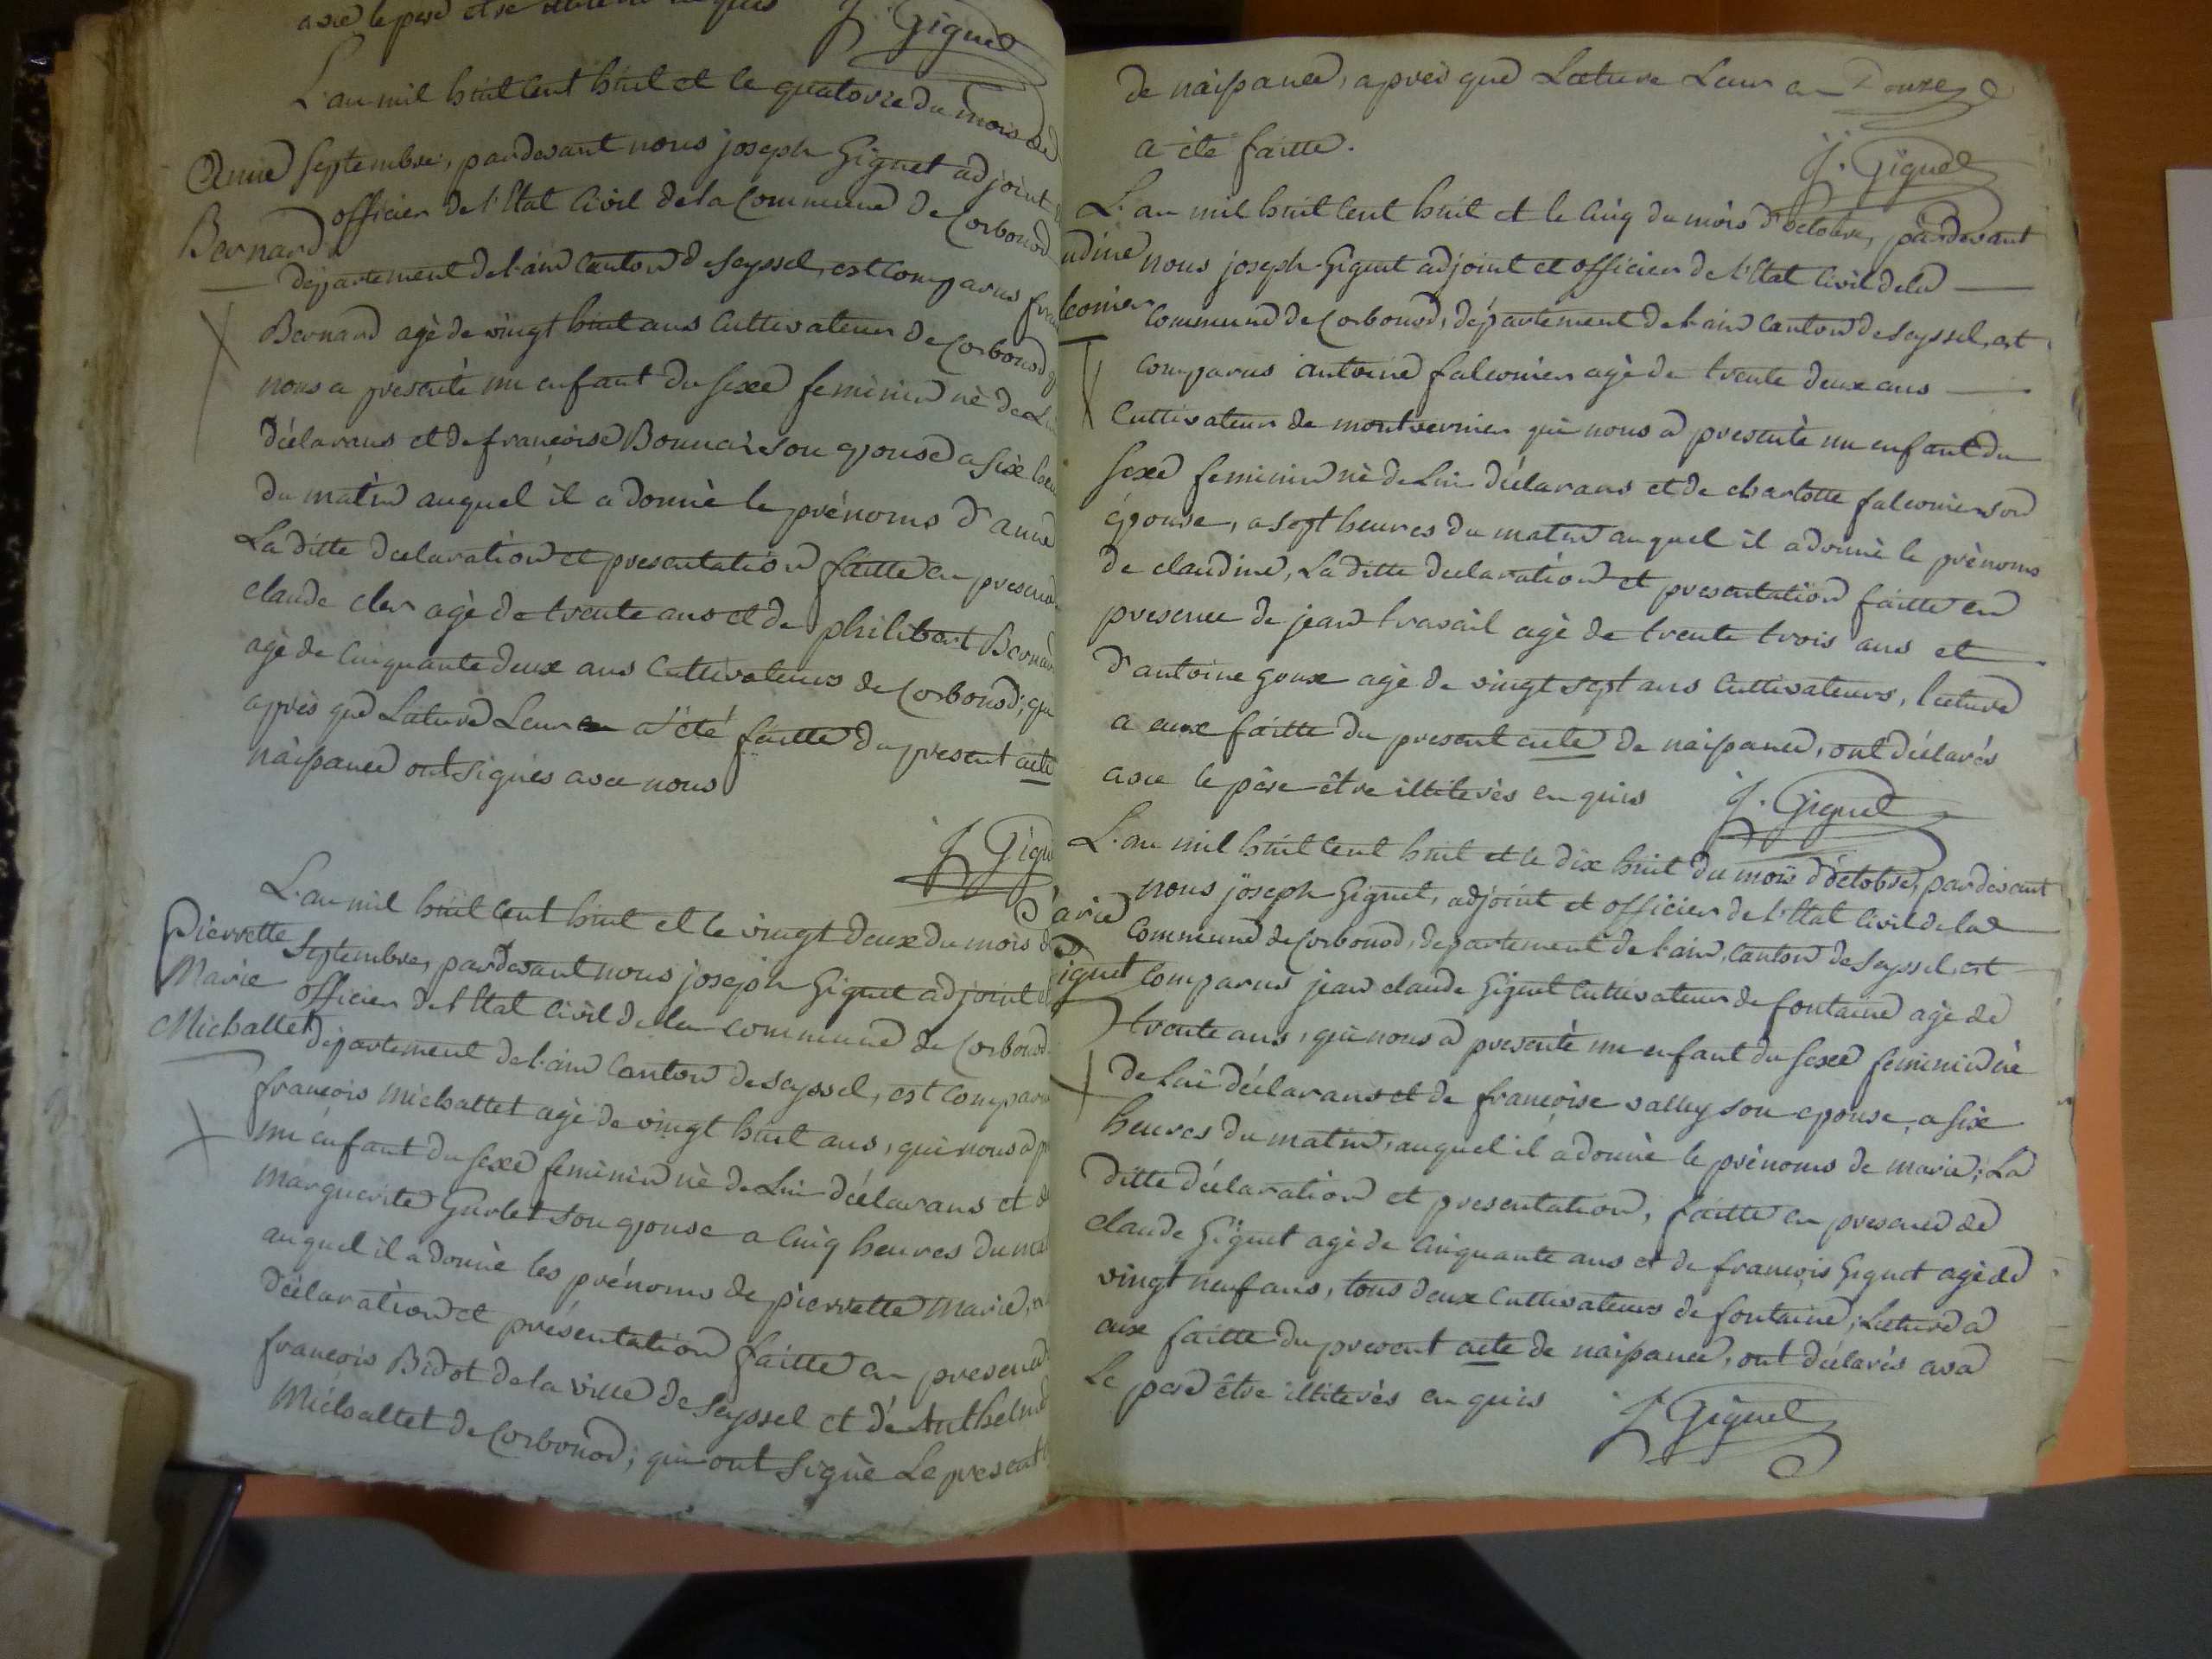 avec le père etre
J. Giguet
L'an mil huit cent huit et le quatorze du mois de
Anne
Bernard
septembre, pardevant nous joseph Giguet adjoint
officier de l'Etat Civil de la Commune de Corbonod
département de l'ain canton de seyssel, est comparus
Bernard agè de vingt huit ans Cultivateur de Corbonod
nous a presentè un enfant du sexe feminin nè de
déclarans et de françoise Bonnaz son epouse a six
du matin auquel il a donnè le prénoms d'anne
La ditte declaration et presentation faitte en
claude cler agè de trente ans et de philibert
agè de Cinquante deux ans Cultivateurs de Corbonod;
après que Lecture Leur en a été faitte du present acte
naissance ont signès avec nous
J Gigu
L'an mil huit cent huit et le vingt deux du mois
Pierrette
Marie
Michallet
Septembre, pardevant nous joseph Giguet adjoint
officier de l'Etat Civil de la commune de Corbonod
département de l'ain Canton de seyssel, est
françois michallet agè de vingt huit ans, qui nous a
un enfant du sexe feminin nè de Lui déclarans et
marguerite Gurlet son epouse a Cinq heures du
auquel il a donnè les prénoms de pierrette marie,
déclaration et présentation faitte en
françois Bidot de la ville de seyssel et d'Anthelme
Michallet de Corbonod; qui ont signè Le present
de naissance, après que Lecture Leur en
a été faitte.
J. Giguet
L'an mil huit cent huit et le Cinq du mois d'octobre, pardevant
udine
lconier
nous joseph Giguet adjoint et officier de l'Etat Civil de la
Commune de Corbonod, département de l'ain canton de seyssel, est
comparus antoine falconier agè de trente deux ans
Cultivateur de montvernier qui nous a presentè un enfant du
sexe feminin nè de Lui déclarans et de charlotte falconier son
épouse, a sept heures du matin auquel il a donnè le prènoms
de claudine, La ditte declaration et presentation faitte en
presence de jean travail agè de trente trois ans et
d'antoine goux agè de vingt sept ans Cultivateurs, lecture
a eux faitte du present acte de naissance, ont déclarés
avec le père etre illiterès enquis
J. Giguet
L'an mil huit cent huit et le dix huit du mois d'octobre, pardevant
arie
iguet
nous joseph Giguet, adjoint et officier de l'Etat Civil de la
Commune de Corbonod, departement de l'ain, Canton de seyssel, est
Comparus jean claude Giguet Cultivateur de fontaine agè de
trente ans, qui nous a presentè un enfant du sexe feminin nè
de Lui déclarans et de françoise valley son epouse, a six
heures du matin, auquel il a donnè le prènoms de marie; La
ditte déclaration et presentation, faitte en presence de
claude Giguet agè de Cinquante ans et de françois Giguet agè de
vingt neuf ans, tous deux Cultivateurs de fontaine; Lecture a
eux faitte du present acte de naissance, ont déclarés
Le pere être illiterès enquis
J Giguet